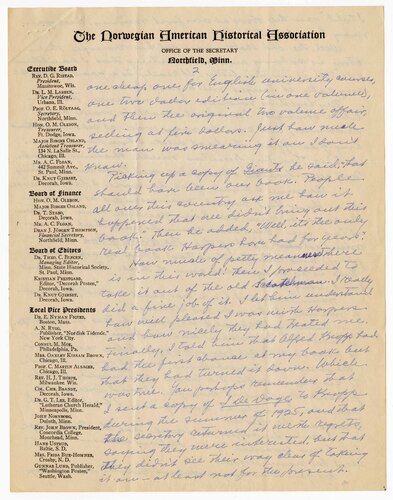 The Norwegian American Historical Association
OFFICE OF THE SECRETARY
Northfield, Minn.
2
Executive Board
REV. D. G. RISTAD,
President,
Manitowoc, Wis.
DR. L. M. LARSEN,
Vice President,
Urbana, Ill.
PROF. O. E. RÖLVAAG,
Secretary,
Northfield, Minn.
HON. O. M. OLESON,
Treasurer,
Ft. Dodge, Iowa.
MAJOR BIRGER OSLAND,
Assistant Treasurer,
134 N. LaSalle St.,
Chicago, Ill.
MR. A. C. FLOAN,
442 Summit Ave.
St. Paul, Minn.
DR. KNUT GJERSET,
Decorah, Iowa.
Board of Finance
HON. O. M. OLESON,
MAJOR BIRGER OSLAND,
DR. T. STABO,
Decorah, Iowa.
MR. A. C. FLOAN,
DEAN J. JØRGEN THOMPSON,
Financial Secretary,
Northfield, Minn.
Board of Editors
DR. THEO. C. BLEGEN,
Managing Editor,
Minn. State Historical Society,
St. Paul, Minn.
KRISTIAN PRESTGARD,
Editor, "Decorah Posten,"
Decorah, Iowa.
DR. KNUT GJERSET,
Decorah, Iowa.
Local Vice Presidents
DR. E. NYMAN FIGVED,
Boston, Mass.
A. N. RYGG,
Publisher, "Nordisk Tidende,"
New York City.
CONSUL M. MOE,
Philadelphia, Pa.
MRS. OAKLEY KISSAM BROWN,
Chicago, Ill.
PROF. C. MARTIN ALSAGER,
Chicago, Ill.
REV. H. J. THORPE,
Milwaukee, Wis.
COL. CHR. BRANDT,
Decorah, Iowa.
DR. G. T. LEE, Editor,
"Lutheran Church Herald,"
Minneapolis, Minn.
JOHN NORDBYE,
Duluth, Minn.
REV. JOHN BROWN, President,
Concordia College,
Moorhead, Minn.
HANS USTRUD,
Baltic, S. D.
MRS. PAULA BUE-HOMNES,
Crosby, N. D.
GUNNAR LUND, Publisher,
"Washington Posten,"
Seattle, Wash.
one cheap one for English university courses,
one two dollar edition (in one volume),
and then the original two volume affair,
selling at five dollars. Just how much
the man was smearing it on I don't
know.
Picking up a copy of Giants he said, "That
should have been our book. People
all over this country ask me how it
happened that we didn't bring out this
book." Then he added, "Well, it's the only
real book Harpers have had for years."
How much of petty meanness there
is in this world! Then I proceeded to
take it out of the old I really
did a fine job of it. I let him understand
how well pleased I was with Harpers
and how nicely they had treated me.
Finally, I told him that Alfred Knopf had
had the first chance at my book but
that they had turned it down. Which
was true. You perhaps remember that
I sent a copy of I de Dage to Knopf
during the summer of 1925, and that
the secretary returned it with regrets,
saying they were interested, but that
they didn't see their way clear of taking
it on - at least not for the present.